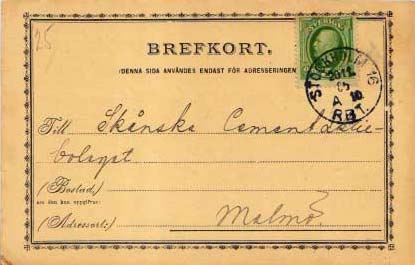 25
BREFKORT.
(DENNA SIDA ANVÄNDES ENDAST FÖR ADRESSERINGEN
SVERIGE
STOCKHOLM 16
20 11
A 10
RBT.
Till Skånska Cementaktie-
bolaget
(Bostad:)
om den kan uppgifvas:
(Adressort:) Malmö.